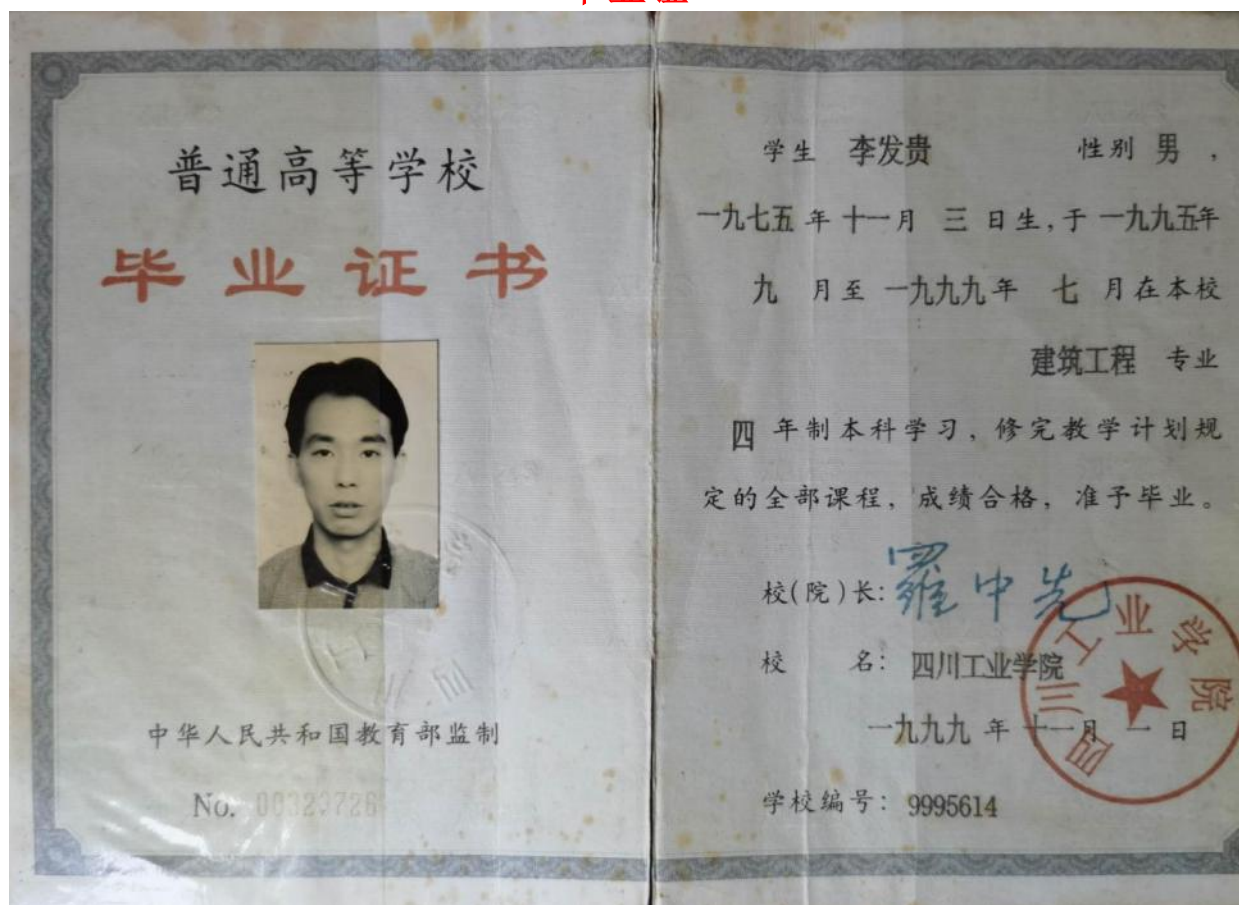 普通高等学校
毕业证书
中华人民共和国教育部监制
No. 00329726
学生 李发贵 性别 男，
一九七五年十一月 三 日生，于一九九五年
九 月至一九九九年 七 月在本校
建筑工程 专业
四 年制本科学习，修完教学计划规
定的全部课程，成绩合格，准予毕业。
校(院)长：羅中先
校 名：四川工业学院
一九九九 年 十一月 一 日
学校编号：9995614
四川工业学院